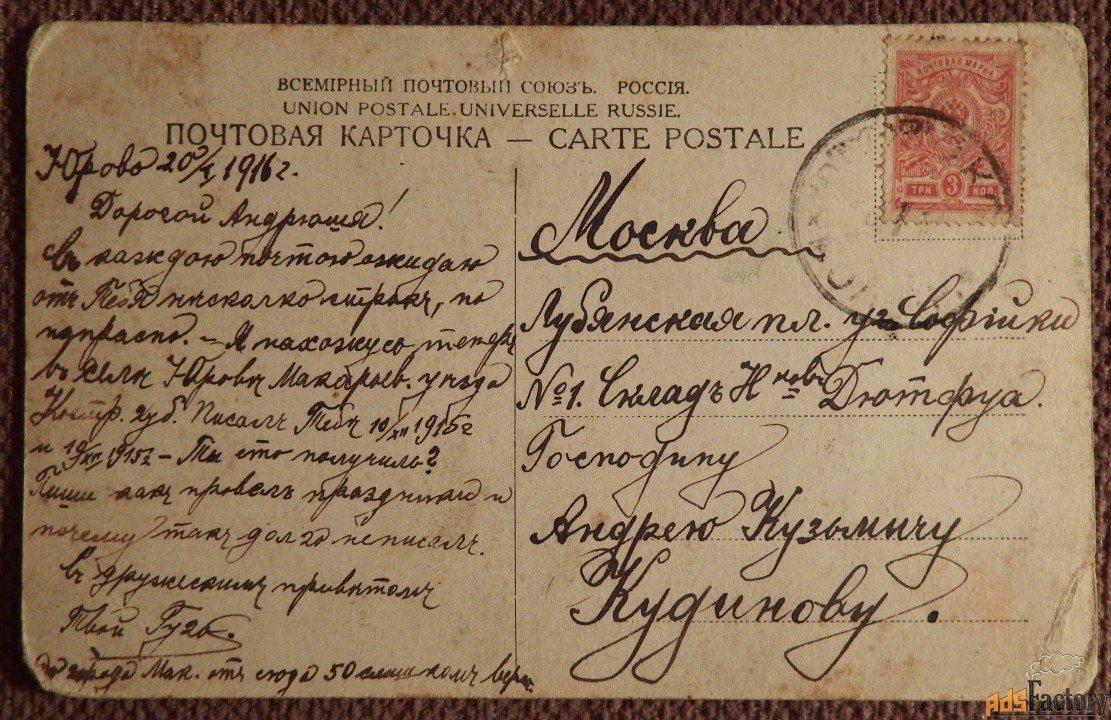 ВСЕМІРНЫЙ ПОЧТОВЫЙ СОЮЗЪ. РОССІЯ.
UNION POSTALE UNIVERSELLE RUSSIE.
ПОЧТОВАЯ КАРТОЧКА — CARTE POSTALE
Юрово 20/I 1916 г.
Дорогой Андрюша!
Съ каждою почтою ожидаю
отъ Тебя нѣсколко строкъ, но
напрасно. — Я нахожусь теперь
въ селѣ Юровѣ Макарьев. уѣзда
Костр. губ. Писалъ Тебѣ 10/XII 1915 г
и 19/XII 1915 г — Ты его получилъ?
Пиши какъ провелъ праздники и
почему такъ долго не писалъ.
Съ дружескимъ привѣтомъ
Твой
до города Мак. отъ сюда 50 слишкомъ верс.
Москва
Лубянская пл. уг. Софійки
№ 1. Складъ Н-ковъ Дютфуа.
Господину
Андрею Кузьмичу
Кудинову.
ПОЧТОВАЯ МАРКА
ТРИ 3 КОП
AdsFactory